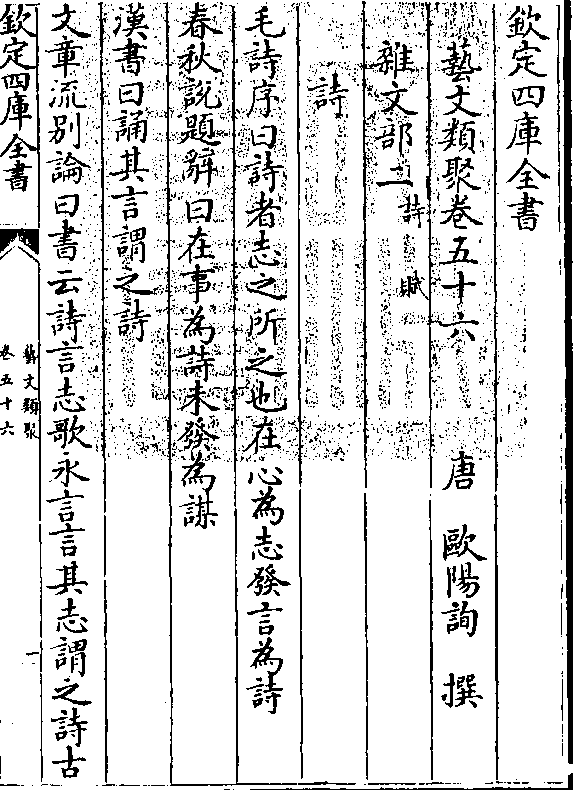 欽定四庫全書
藝文類聚卷五十六
唐 歐陽詢 撰
雜文部二 詩 賦
詩
毛詩序曰詩者志之所之也在心為志發言為詩
春秋說題辭曰在事為詩未發為謀
漢書曰誦其言謂之詩
文章流別論曰書云詩言志歌永言言其志謂之詩古
欽定四庫全書
藝文類聚
卷五十六
一